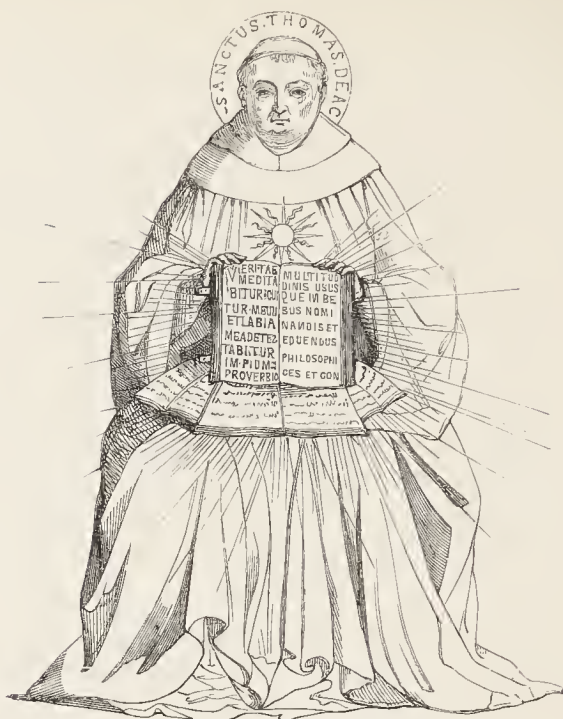 SANCTUS.THOMAS DE AC
VERITAS
MEDITA
BITUR.
TUR.
ET LABIA
MEA DETEZ
TABITUR
IM.PIUM:
PROVERBIO
MULTITUD
DINIS USUS
QUE IN BE
BUS NOMI
NANDIS ET
EDUENDUS
PHILOSOPHI
CES ET CON